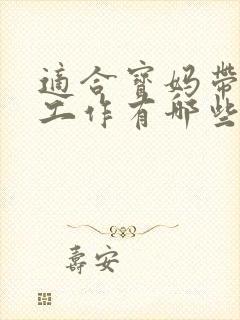 適合寶媽帶
工作有哪些
壽安